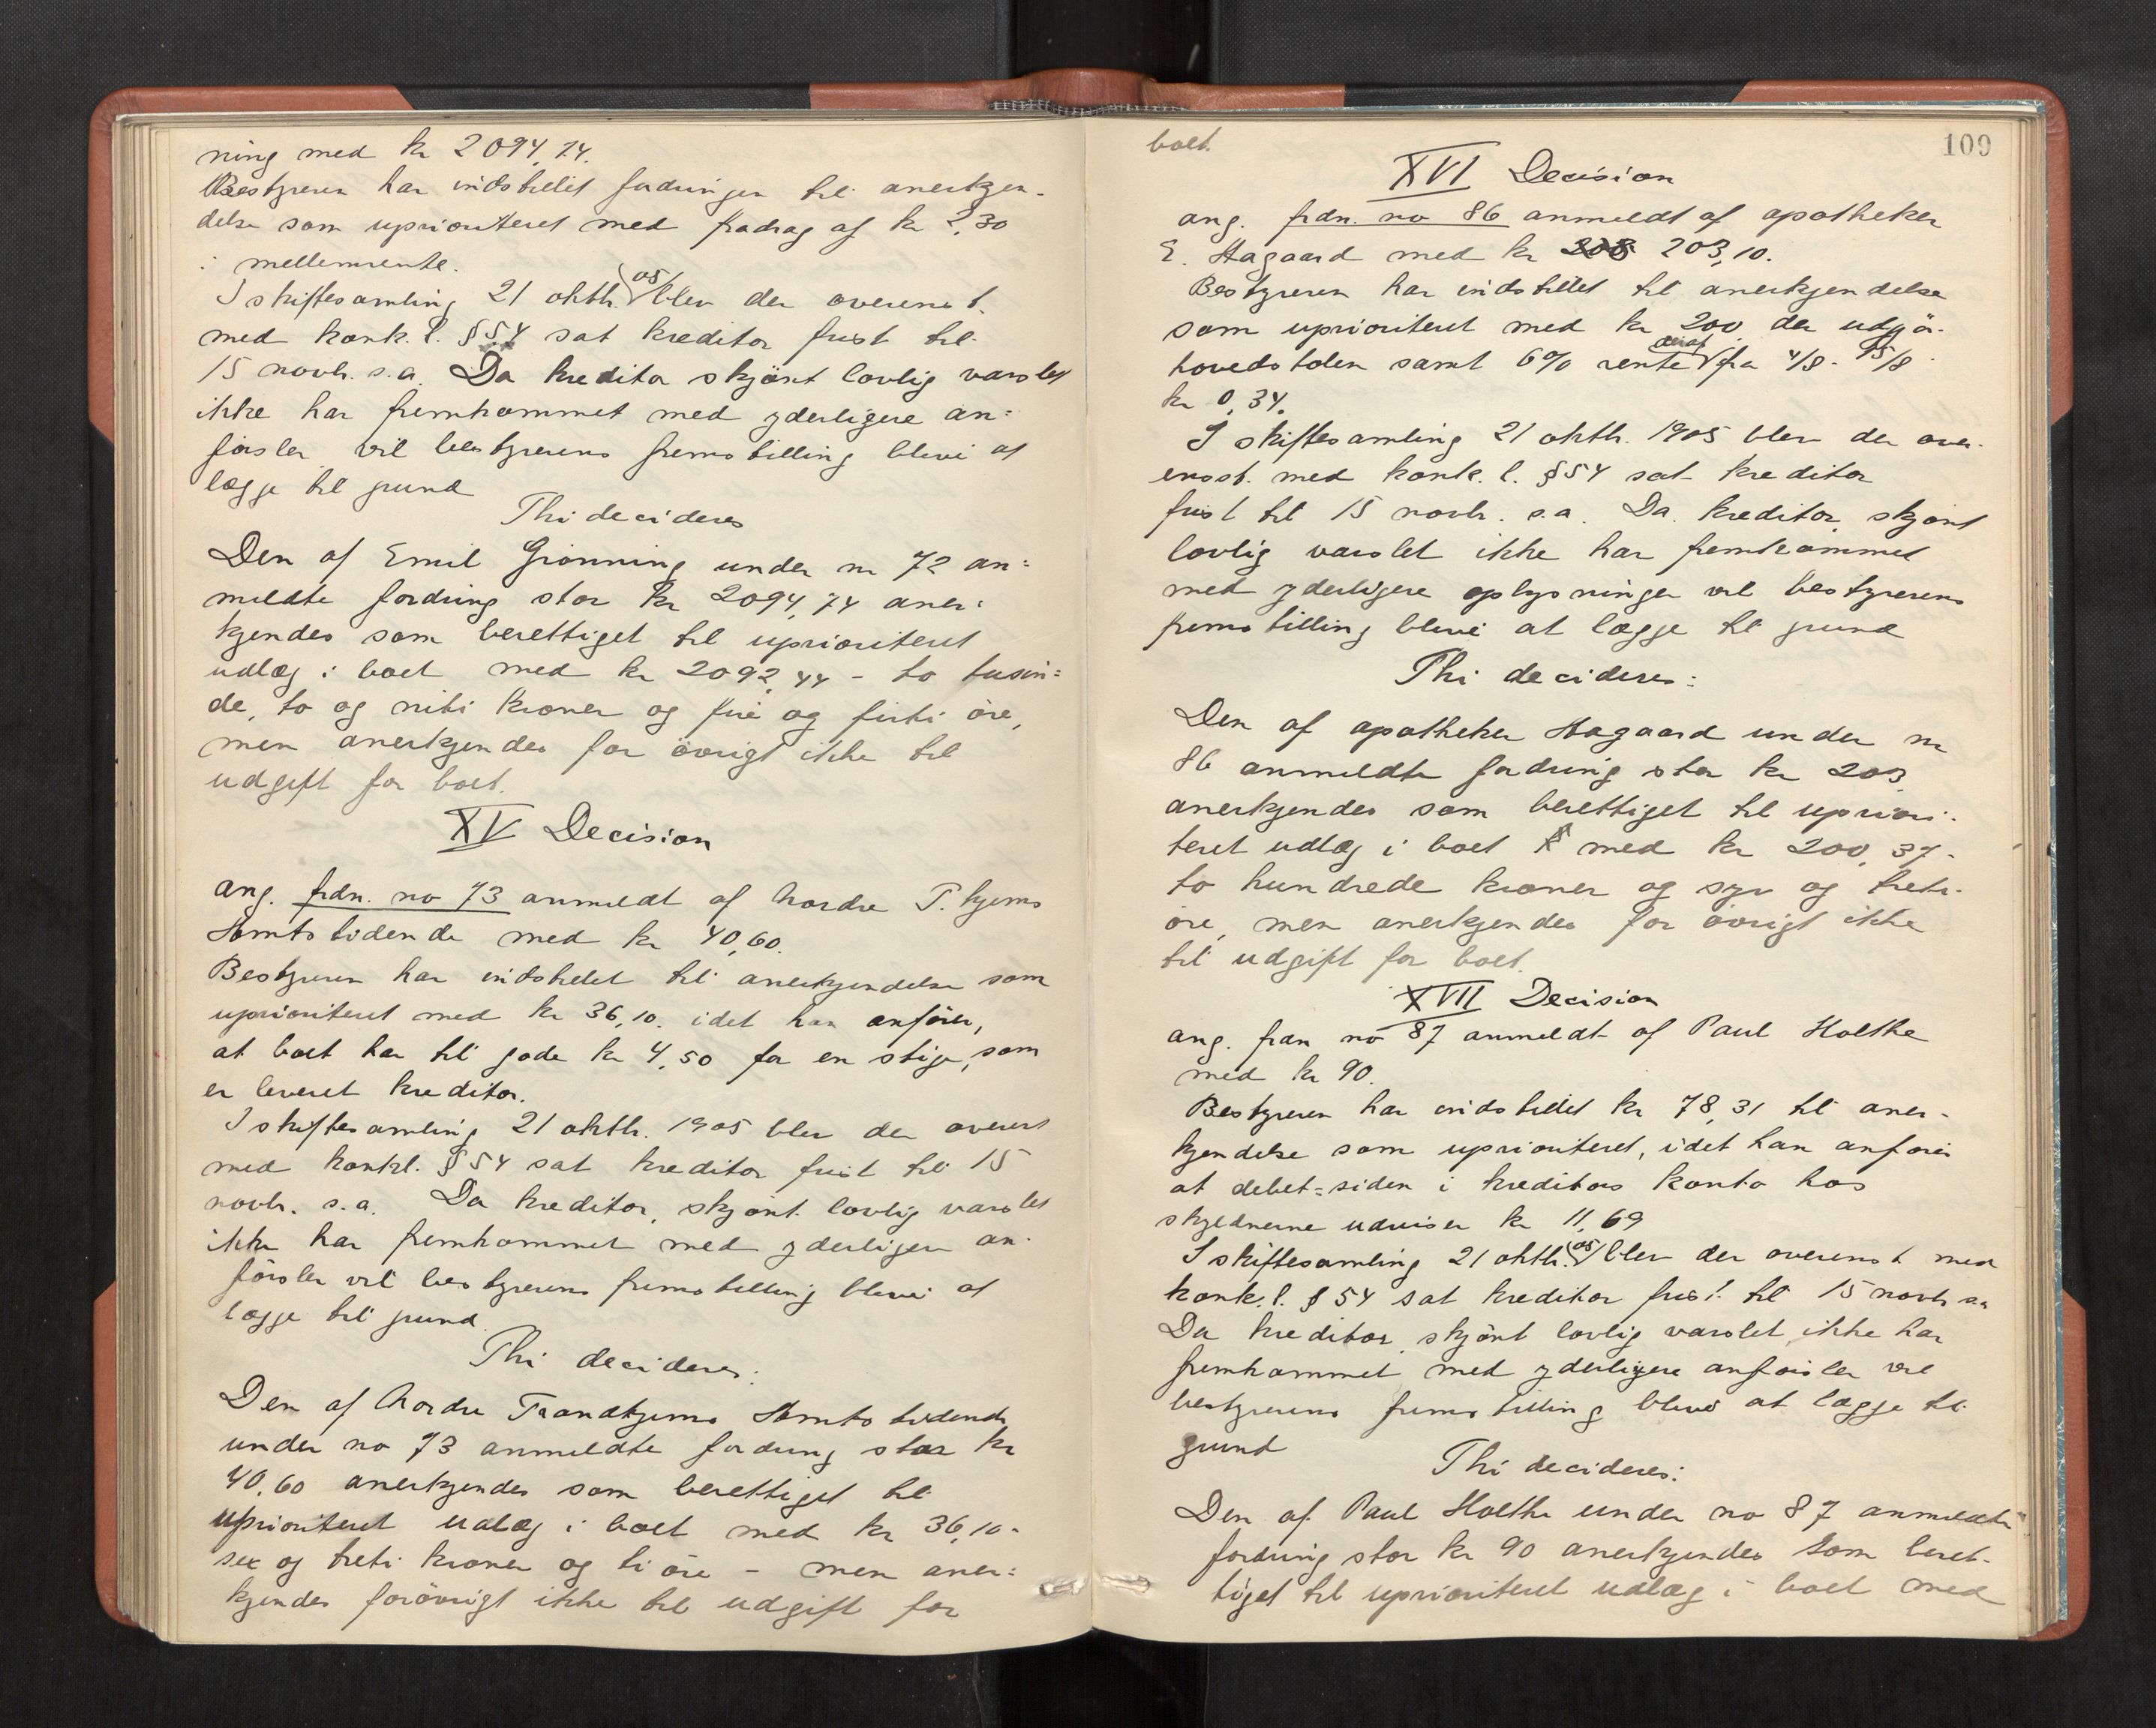 ning med kr 2094,74.
Bestyreren har indstillet fordringen til anerkjen-
delse som uprioriteret med fradrag af kr 2,30
i mellemrente.
I skiftesamling 21 oktbr. 05 blev der overenst.
med konk. l. § 54 sat kreditor frist til
15 novbr. s.a. Da kreditor skjönt lovlig varslet
ikke har fremkommet med yderligere an=
førsler vil bestyrerens fremstilling blive at
lægge til grund
Thi decideres
Den af Emil Grønning under nr 72 an=
meldte fordring stor kr 2094,74 aner=
kjendes som berettiget til uprioriteret
udlæg i boet med kr 2092,44 - to tusin=
de, to og niti kroner og fire og firti öre,
men anerkjendes for övrigt ikke til
udgift for boet.
XV Decision
ang. frdn. no 73 anmeldt af Nordre T.hjems
Amtstidende med kr 40,60.
Bestyreren har indstillet til anerkjendelse som
uprioriteret med kr 36,10. idet han anförer,
at boet har til gode kr 4,50 for en stige, som
er leveret kreditor.
I skiftesamling 21 oktbr. 1905 blev der overenst
med konkl. § 54 sat kreditor frist til 15
novbr. s.a. Da kreditor, skjönt lovlig varslet
ikke har fremkommet med yderligere an-
førsler vil bestyrerens fremstilling blive at
lægge til grund.
Thi decideres:
Den af Nordre Trondhjems Amtstidende
under no 73 anmeldte fordring stor kr
40,60 anerkjendes som berettiget til
uprioriteret udlæg i boet med kr 36,10-
sex og treti kroner og ti öre - men aner=
kjendes forövrigt ikke til udgift for
109
boet.
XVI Decision
ang. frdn. no 86 anmeldt af apotheker
E. Hagaard med kr 203,10.
Bestyreren har indstillet til anerkjendelse
som uprioriteret med kr 200 der udgör
hovedstolen samt 6% rente deraf fra 4/8 - 15/8
kr 0,34.
I skiftesamling 21 oktbr. 1905 blev der over-
ensst. med konk. l. § 54 sat kreditor
frist til 15 novbr. s.a. Da kreditor, skjönt
lovlig varslet ikke har fremkommet
med yderligere oplysninger vil bestyrerens
fremstilling blive at lægge til grund
Thi decideres:
Den af apotheker Hagaard under nr
86 anmeldte fordring stor kr 203
anerkjendes som berettiget til upriori-
teret udlæg i boet med kr 200,37-
to hundrede kroner og syv og treti-
öre, men anerkjendes for övrigt ikke
til udgift for boet.
XVII Decision
ang. frdn no 87 anmeldt af Paul Holthe
med kr 90.
Bestyreren har indstillet kr 78,31 til aner-
kjendelse som uprioriteret, idet han anförer
at debet=siden i kreditors konto hos
skyldnerne udviser kr 11,69
I skiftesamling 21 oktbr. 05 blev der overenst med
konk. l. § 54 sat kreditor frist til 15 novbr s.a
Da kreditor, skjönt lovlig varslet, ikke har
fremkommet med yderligere anförsler vil
bestyrerens fremstilling blive at lægge til
grund
Thi decideres:
Den af Paul Holthe under no 87 anmeldte
fordring stor kr 90 anerkjendes som beret-
tiget til uprioriteret udlæg i boet med